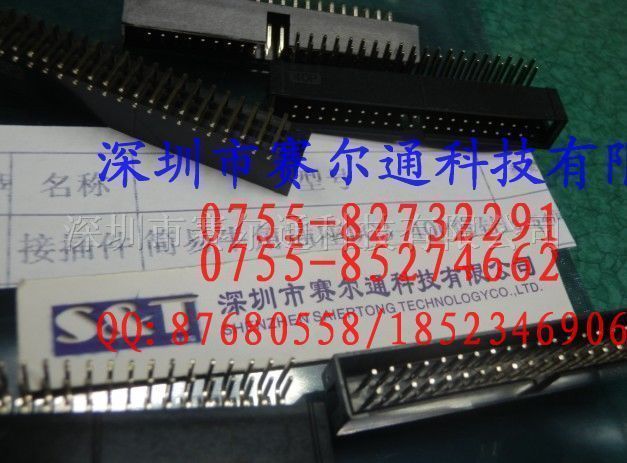 深圳市赛尔通科技有限
名称
型
0755-82732291
深圳市赛尔通科技有限
接插件 简易
0755-85274662
S&T 深圳市赛尔通科技有限公司
SHENZHEN SAIERTONG TECHNOLOGYCO.,LTD.
QQ:87680558/1852346906